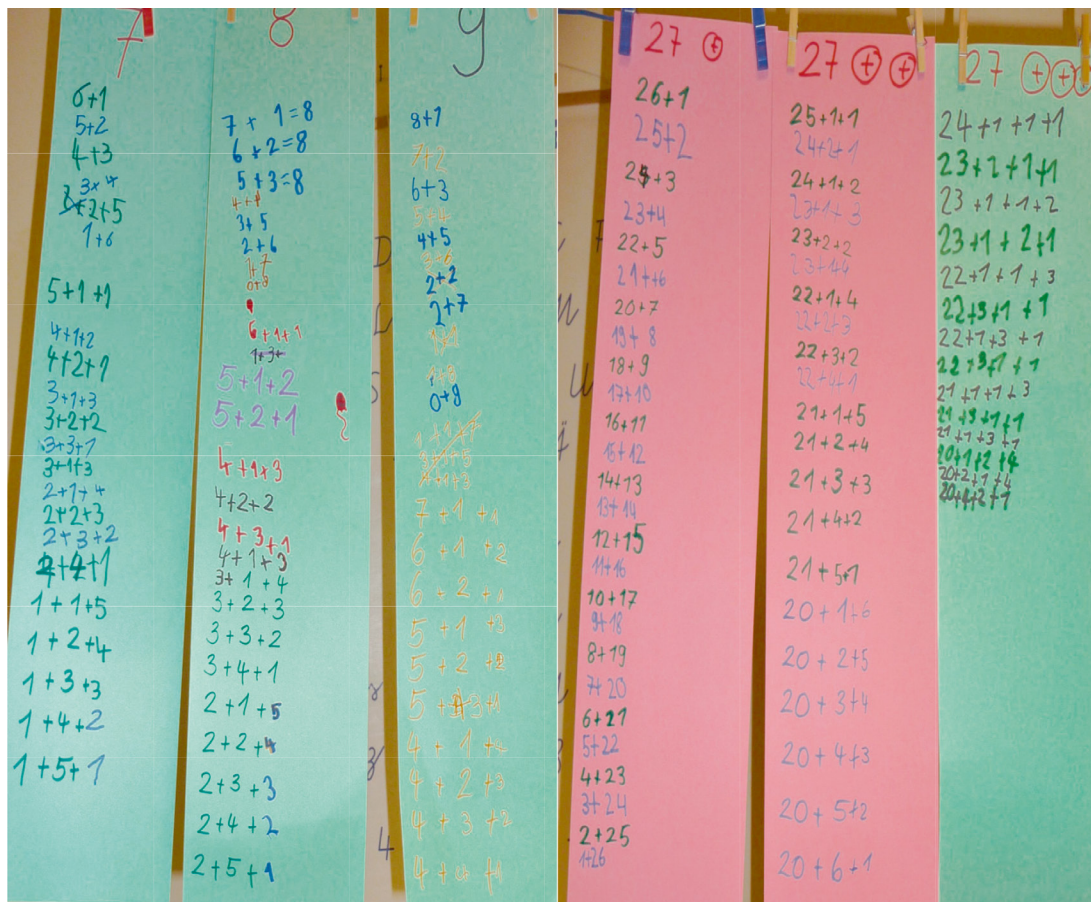 7
6+1
5+2
4+3
3+4
2+5
1+6
5+1+1
4+1+2
4+2+1
3+1+3
3+2+2
3+3+1
3+1+3
2+1+4
2+2+3
2+3+2
2+4+1
1+1+5
1+2+4
1+3+3
1+4+2
1+5+1
8
7+1=8
6+2=8
5+3=8
4+4
3+5
2+6
1+7
0+8
6+1+1
1+3+
5+1+2
5+2+1
4+1+3
4+2+2
4+3+1
4+1+3
3+1+4
3+2+3
3+3+2
3+4+1
2+1+5
2+2+4
2+3+3
2+4+2
2+5+1
9
8+1
7+2
6+3
5+4
4+5
3+6
2+2
2+7
0+9
7+1+1
6+1+2
6+2+1
5+1+3
5+2+2
5+3+1
4+1+2
4+2+3
4+3+2
4+4+1
27 +
26+1
25+2
24+3
23+4
22+5
21+6
20+7
19+8
18+9
17+10
16+11
15+12
14+13
13+14
12+15
11+16
10+17
9+18
8+19
7+20
6+21
5+22
4+23
3+24
2+25
1+26
27 + +
25+1+1
24+2+1
24+1+2
23+1+3
23+2+2
23+44
22+1+4
22+2+3
22+3+2
22+4+1
21+1+5
21+2+4
21+3+3
21+4+2
21+5+1
20+1+6
20+2+5
20+3+4
20+4+3
20+5+2
20+6+1
27 + + +
24+1+1+1
23+2+1+1
23+1+1+2
23+1+2+1
22+1+1+3
22+3+1+1
22+1+3+1
22+3+1+1
21+1+1+3
21+3+1+1
21+1+3+1
20+1+2+4
20+2+1+4
20+4+2+1